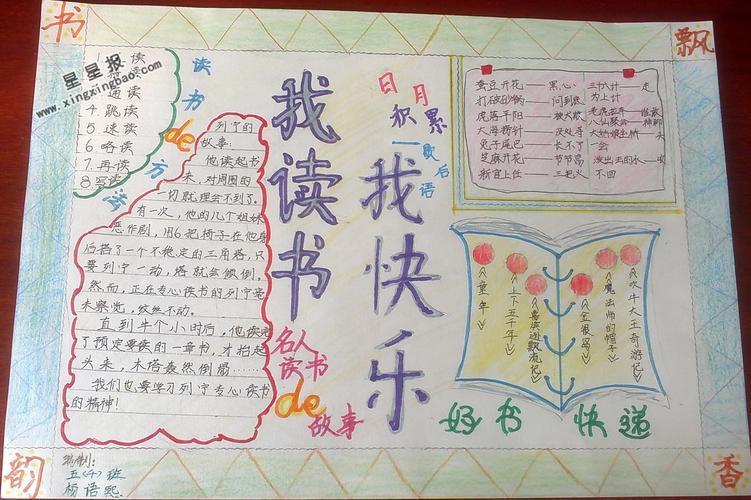 书
飘
韵
香
星星报
www.xingxingbao.com
读
书
de
方
法
通读
4.跳读
5.速读
6.略读
7.再读
8.写读
列宁的
故事:
他读起书
来,对周围的
一切就理会不到了。
有一次,他的几个姐妹
恶作剧,用6把椅子在他身
后搭了一个不稳定的三角塔,只
要列宁一动,塔就会倾倒。
然而,正在专心读书的列宁毫
未察觉,纹丝不动。
直到半个小时后,他读完
了预定要读的一章书,才抬起
头来,木塔轰然倒塌……
我们也要学习列宁专心读书
的精神!
我读书
我快乐
名人
读书
de
故事
日月
积累
歇后语
蚕豆开花——黑心
打破砂锅——问到底
虎落平阳——被犬欺
大海捞针——没处寻
兔子尾巴——长不了
芝麻开花——节节高
新官上任——三把火
三十六计——走
为上计
一会
泼出去的水——收
不回
《童年》
《上下五千年》
《鲁滨逊飘流记》
《金银岛》
《魔法师的帽子》
《吹牛大王奇游记》
好书 快递
编制:
五(4)班
杨语熙